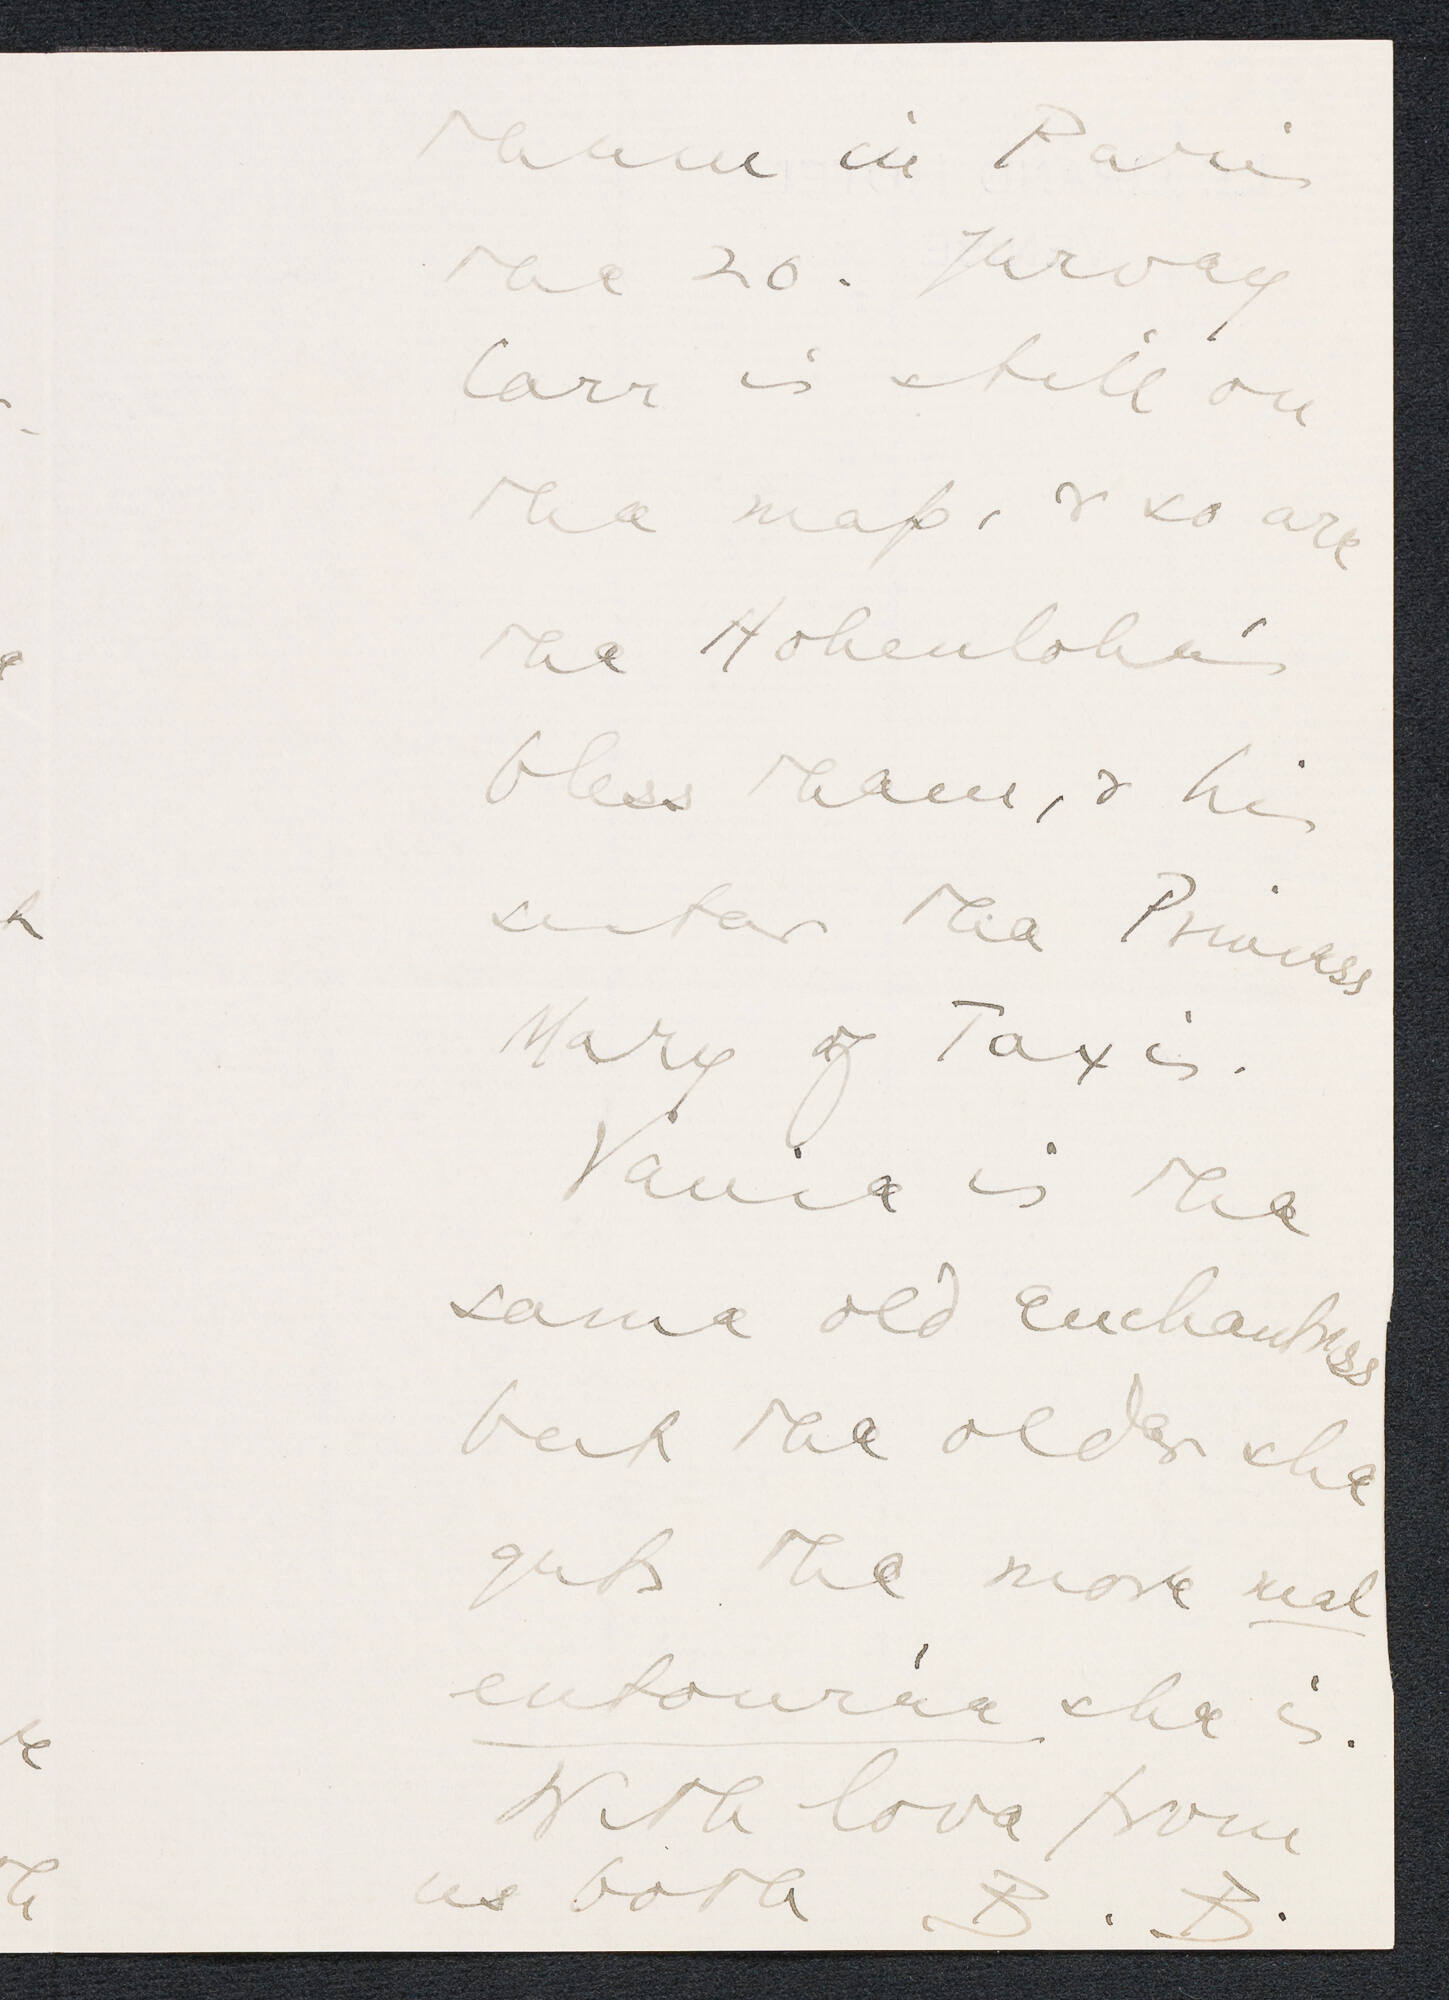 them in Paris
the 20. Jarvey
Carr is still on
the map, & so are
the Hohenlohe's
bless them, & his
sister the Princess
Mary of Taxis.
Venice is the
same old enchantress
but the older she
gets the more mal
entourée she is.
With love from
us both B. B.